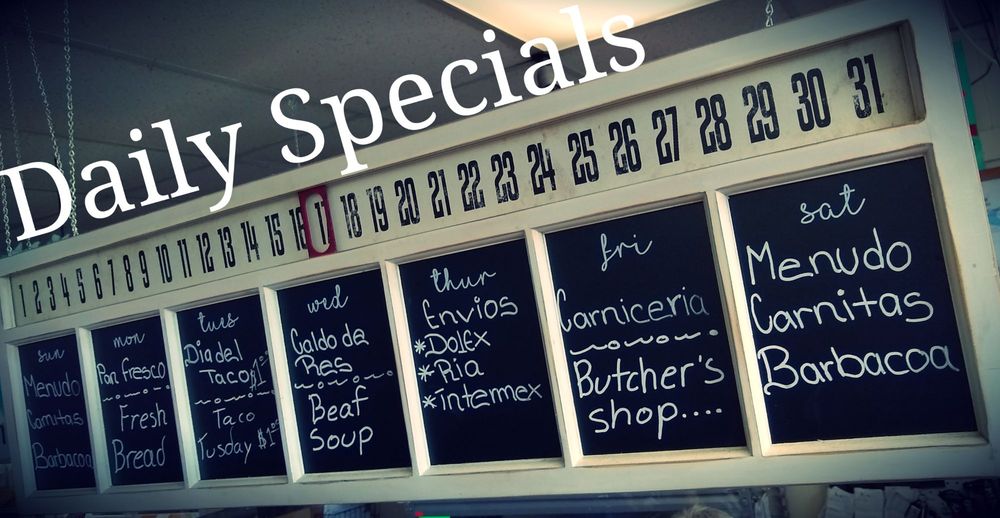 Daily Specials
1 2 3 4 5 6 7 8 9 10 11 12 13 14 15 16 17 18 19 20 21 22 23 24 25 26 27 28 29 30 31
sun
Menudo
Carnitas
Barbacoa
mon
Pan fresco
Fresh
Bread
tues
Dia del
Taco
Taco
Tusday
wed
Caldo de
Res
Beaf
Soup
thur
Envios
*Dolex
*Ria
*intermex
fri
Carniceria
Butcher's
shop....
sat
Menudo
Carnitas
Barbacoa